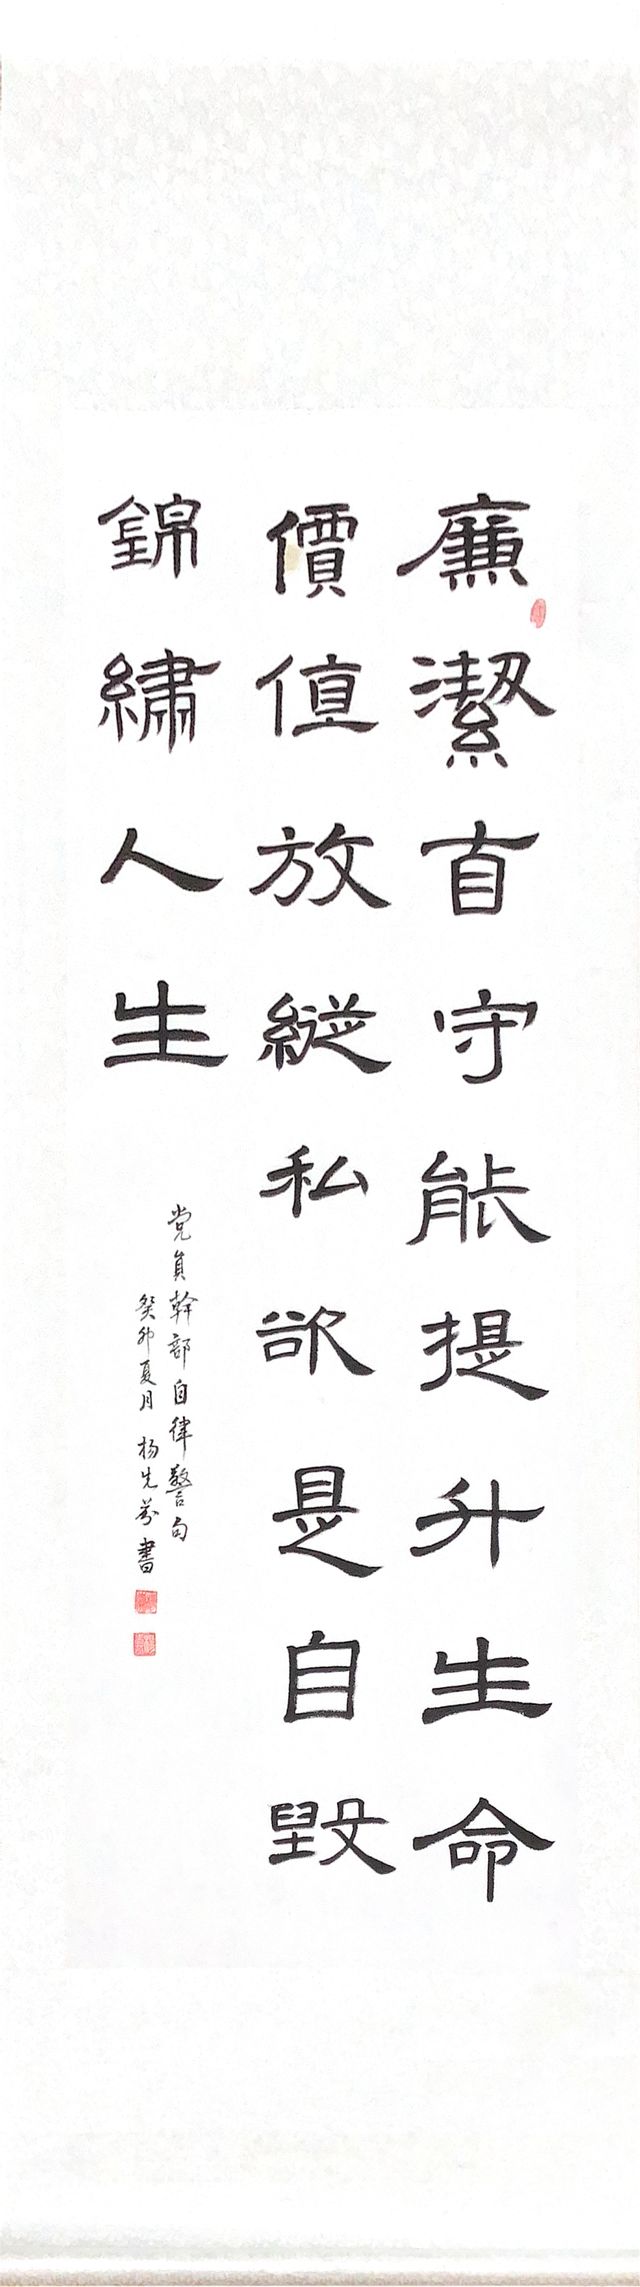 廉潔首守能提升生命
價值放縱私欲是自毀
錦繡人生
党員幹部自律警句
癸卯夏月 杨先芬書